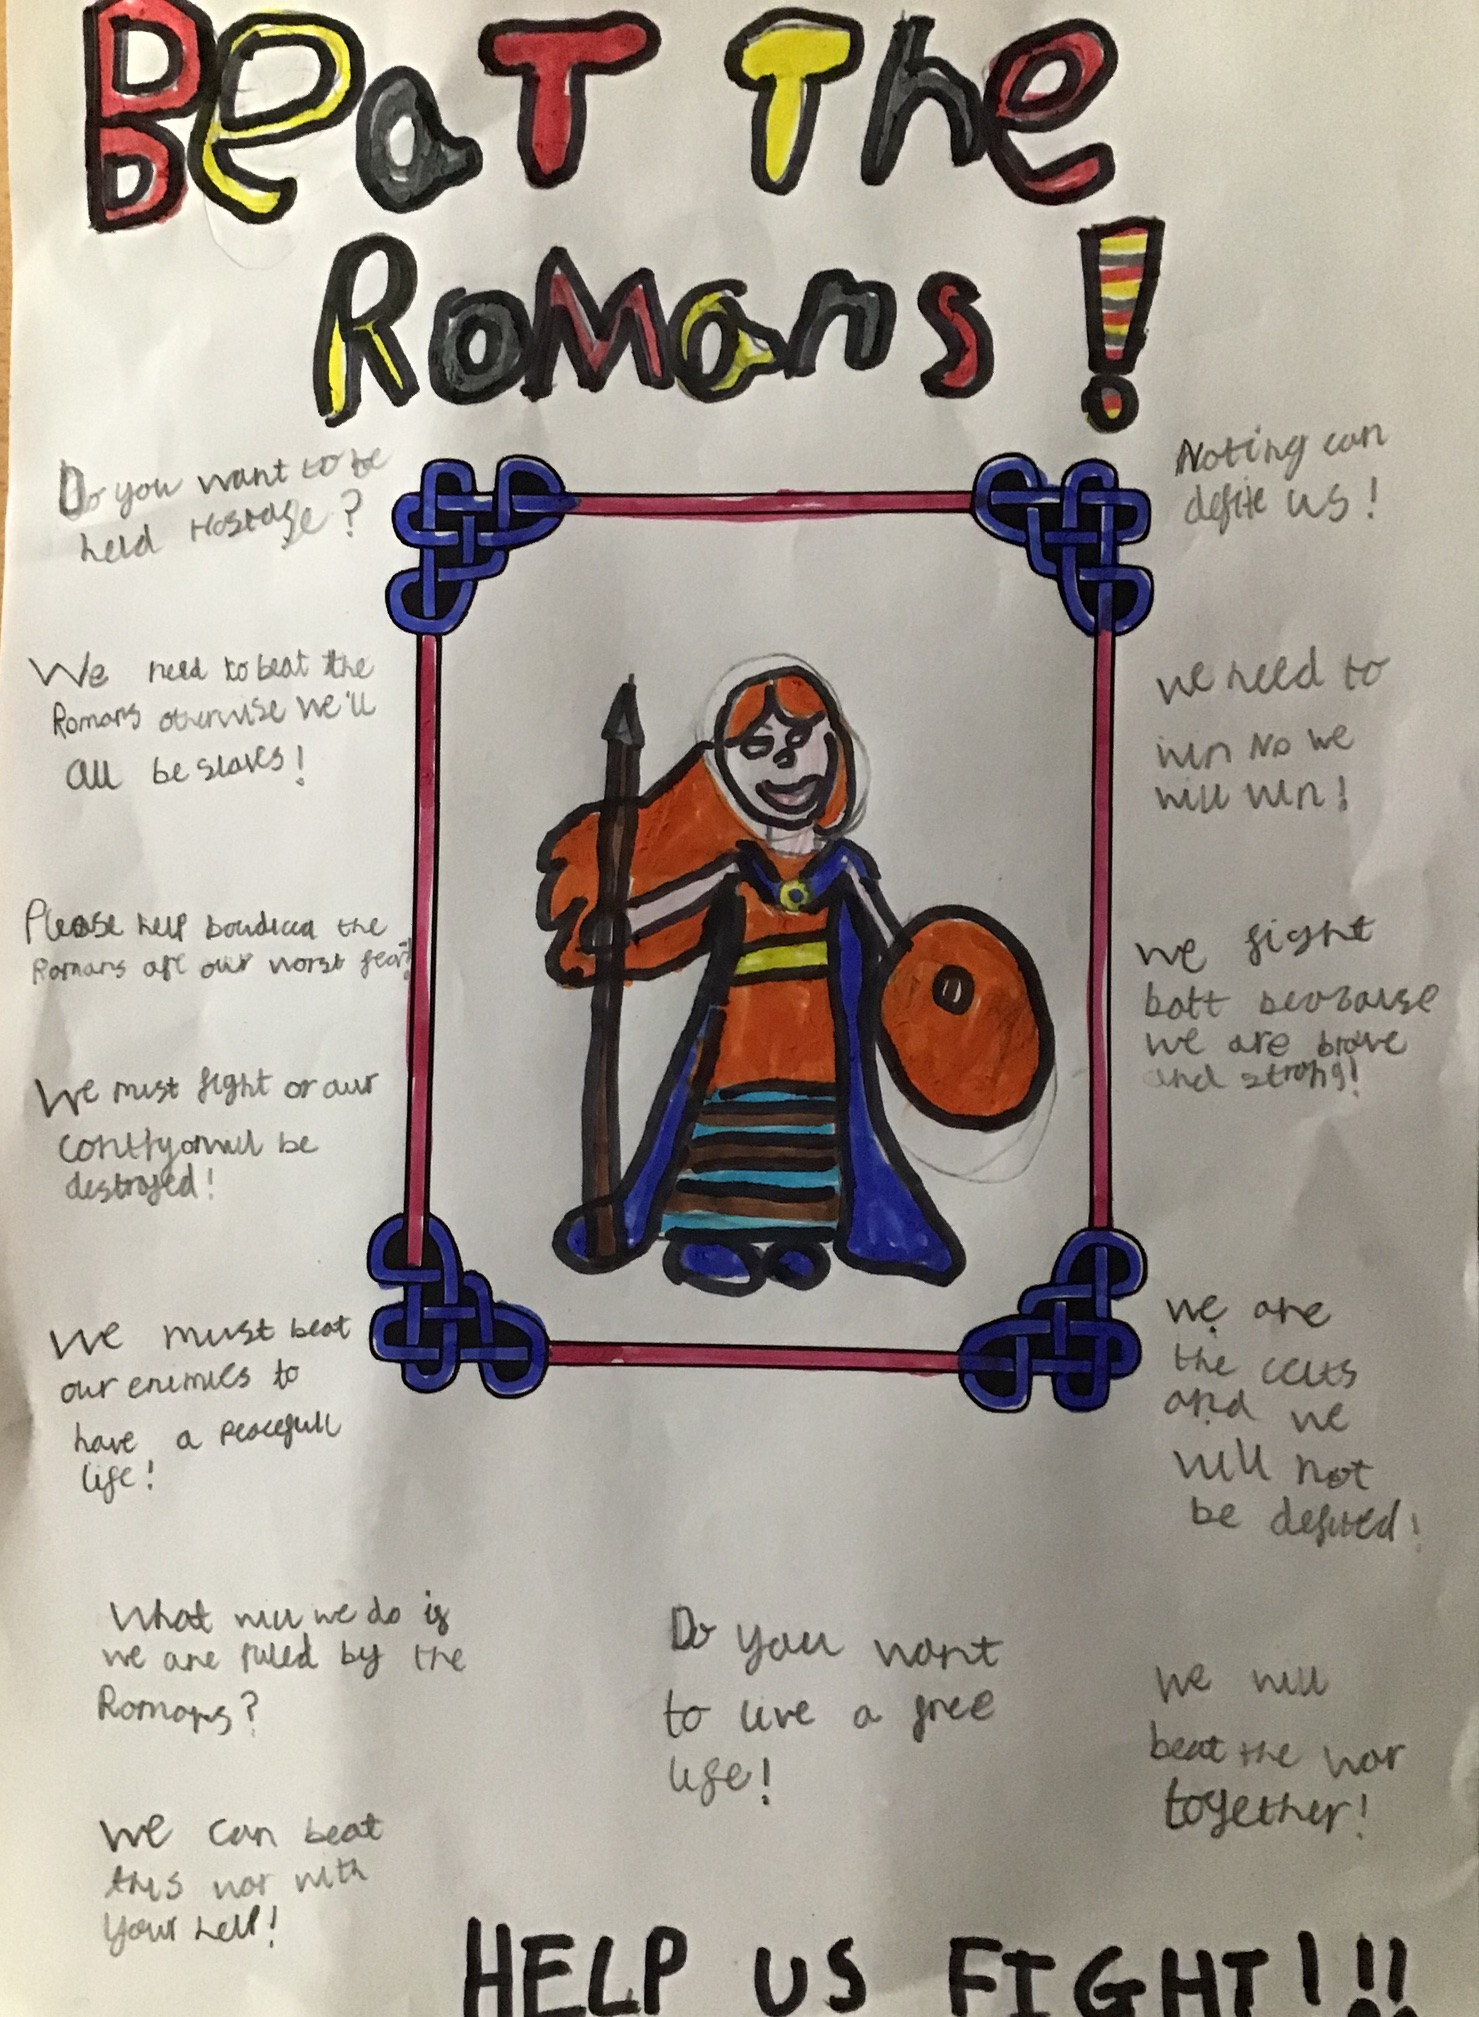 Beat The
Romans!
Do you want to be
held Hostage?
We need to beat the
Romans otherwise we'll
all be slaves!
Please help boudicca the
Romans are our worst fear!
We must fight or our
will be
destroyed!
We must beat
our enemies to
have a peacefull
life!
What will we do if
we are ruled by the
Romans?
We can beat
this war with
your help!
Noting can
defite us!
we need to
win No we
will win!
we fight
batt
we are brave
and strong!
we are
the celts
and we
will not
be defited!
Do you want
to live a free
life!
We will
beat the war
together!
HELP US FIGHT!!!